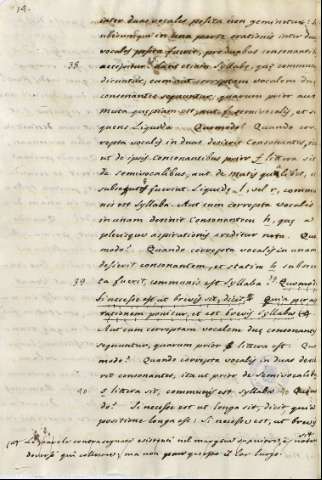 inter duas vocales posita non geminetur:
ubicunque in una parte orationis inter duas
vocales posita fuerit, pro duabus consonantibus
accipitur. Sunt etiam syllabę, quę communes
dicuntur, cum aut correptam vocalem duę
consonantes sequuntur, quarum prior aut
muta quępiam est, aut semivocalis, et se
quens Liquida. Quomodo? Quando cor
repta vocalis in duas desinit Consonantes,
ut de ipsis Consonantibus prior f littera sit
de semivocalibus, aut de mutis quęlibet, et
subsequens fuerit Liquida l, vel r, commu
nis est syllaba. Aut cum correpta vocalis
in unam desinit Consonantem h, quę a
plerisque aspirationis creditur nota. Quo
modo? Quando correpta vocalis in unam
desierit consonantem, et statim h subsecu
ta fuerit, communis est syllaba. Quomodo
39 Si necesse est ut brevis sit, dicit
rationem ponitur, et est brevis syllaba (a)
Aut cum correptam vocalem duę consonantes
sequuntur, quarum prior f littera est. Quo
modo? Quando correpta vocalis in duas desie
rit consonantes, ita ut prior de semivocalibus
40 s littera sit, communis est syllaba. Quomo
do? Si necesse est ut longa sit, dicit quia
positione longa est. Si necesse est, ut brevis
(a) Le parole contrasegnate
diverse qui collocare, ma non pare questo il lor luogo.